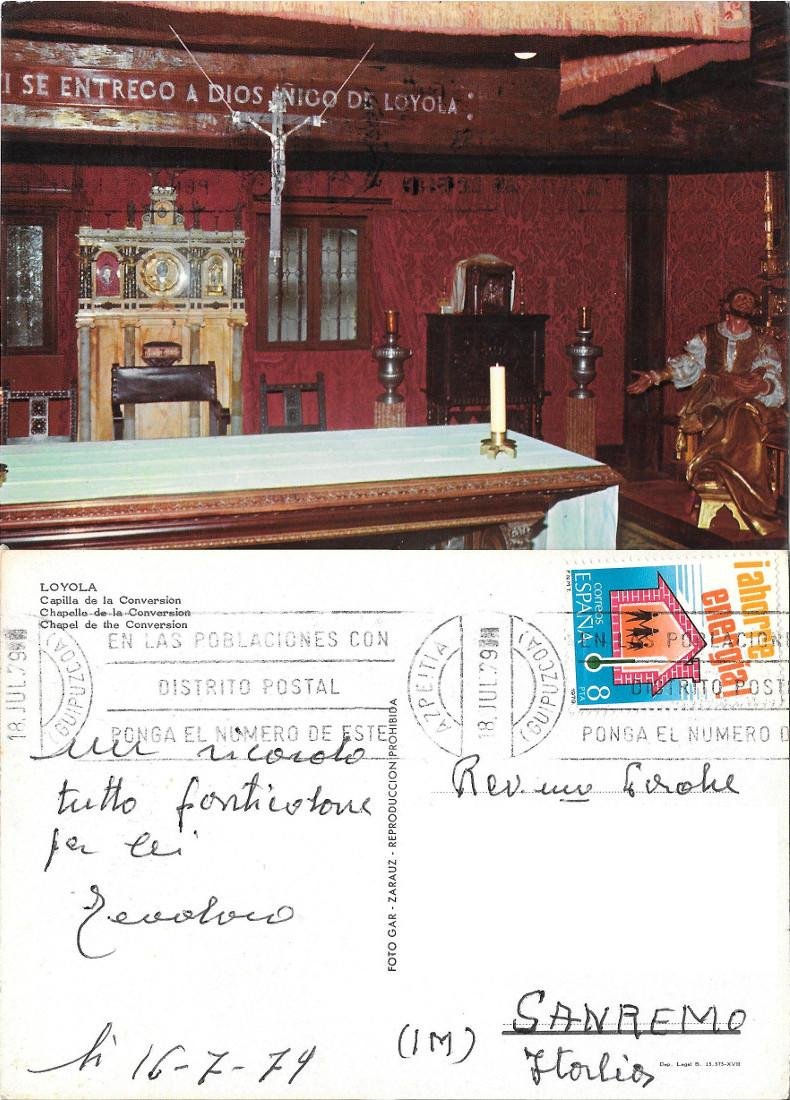 I SE ENTREGO A DIOS IÑIGO DE LOYOLA :
LOYOLA
Capilla de la Conversion
Chapelle de la Conversion
Chapel de the Conversion
18.JUL.79
(GUIPUZCOA)
EN LAS POBLACIONES CON
DISTRITO POSTAL
PONGA EL NUMERO DE ESTE
AZPEITIA
18.JUL.79
(GUIPUZCOA)
EN LAS POBLACIONE
DISTRITO POST
PONGA EL NUMERO D
correos
ESPAÑA
8
PTA
1979
F.N.M.T.
¡ahorre
energía!
un ricordo
tutto particolare
per lei
lì 16-7-79
FOTO GAR - ZARAUZ - REPRODUCCION PROHIBIDA
Rev.mo
SANREMO
(IM)
Italia
Dep. Legal B. 15.573-XVII